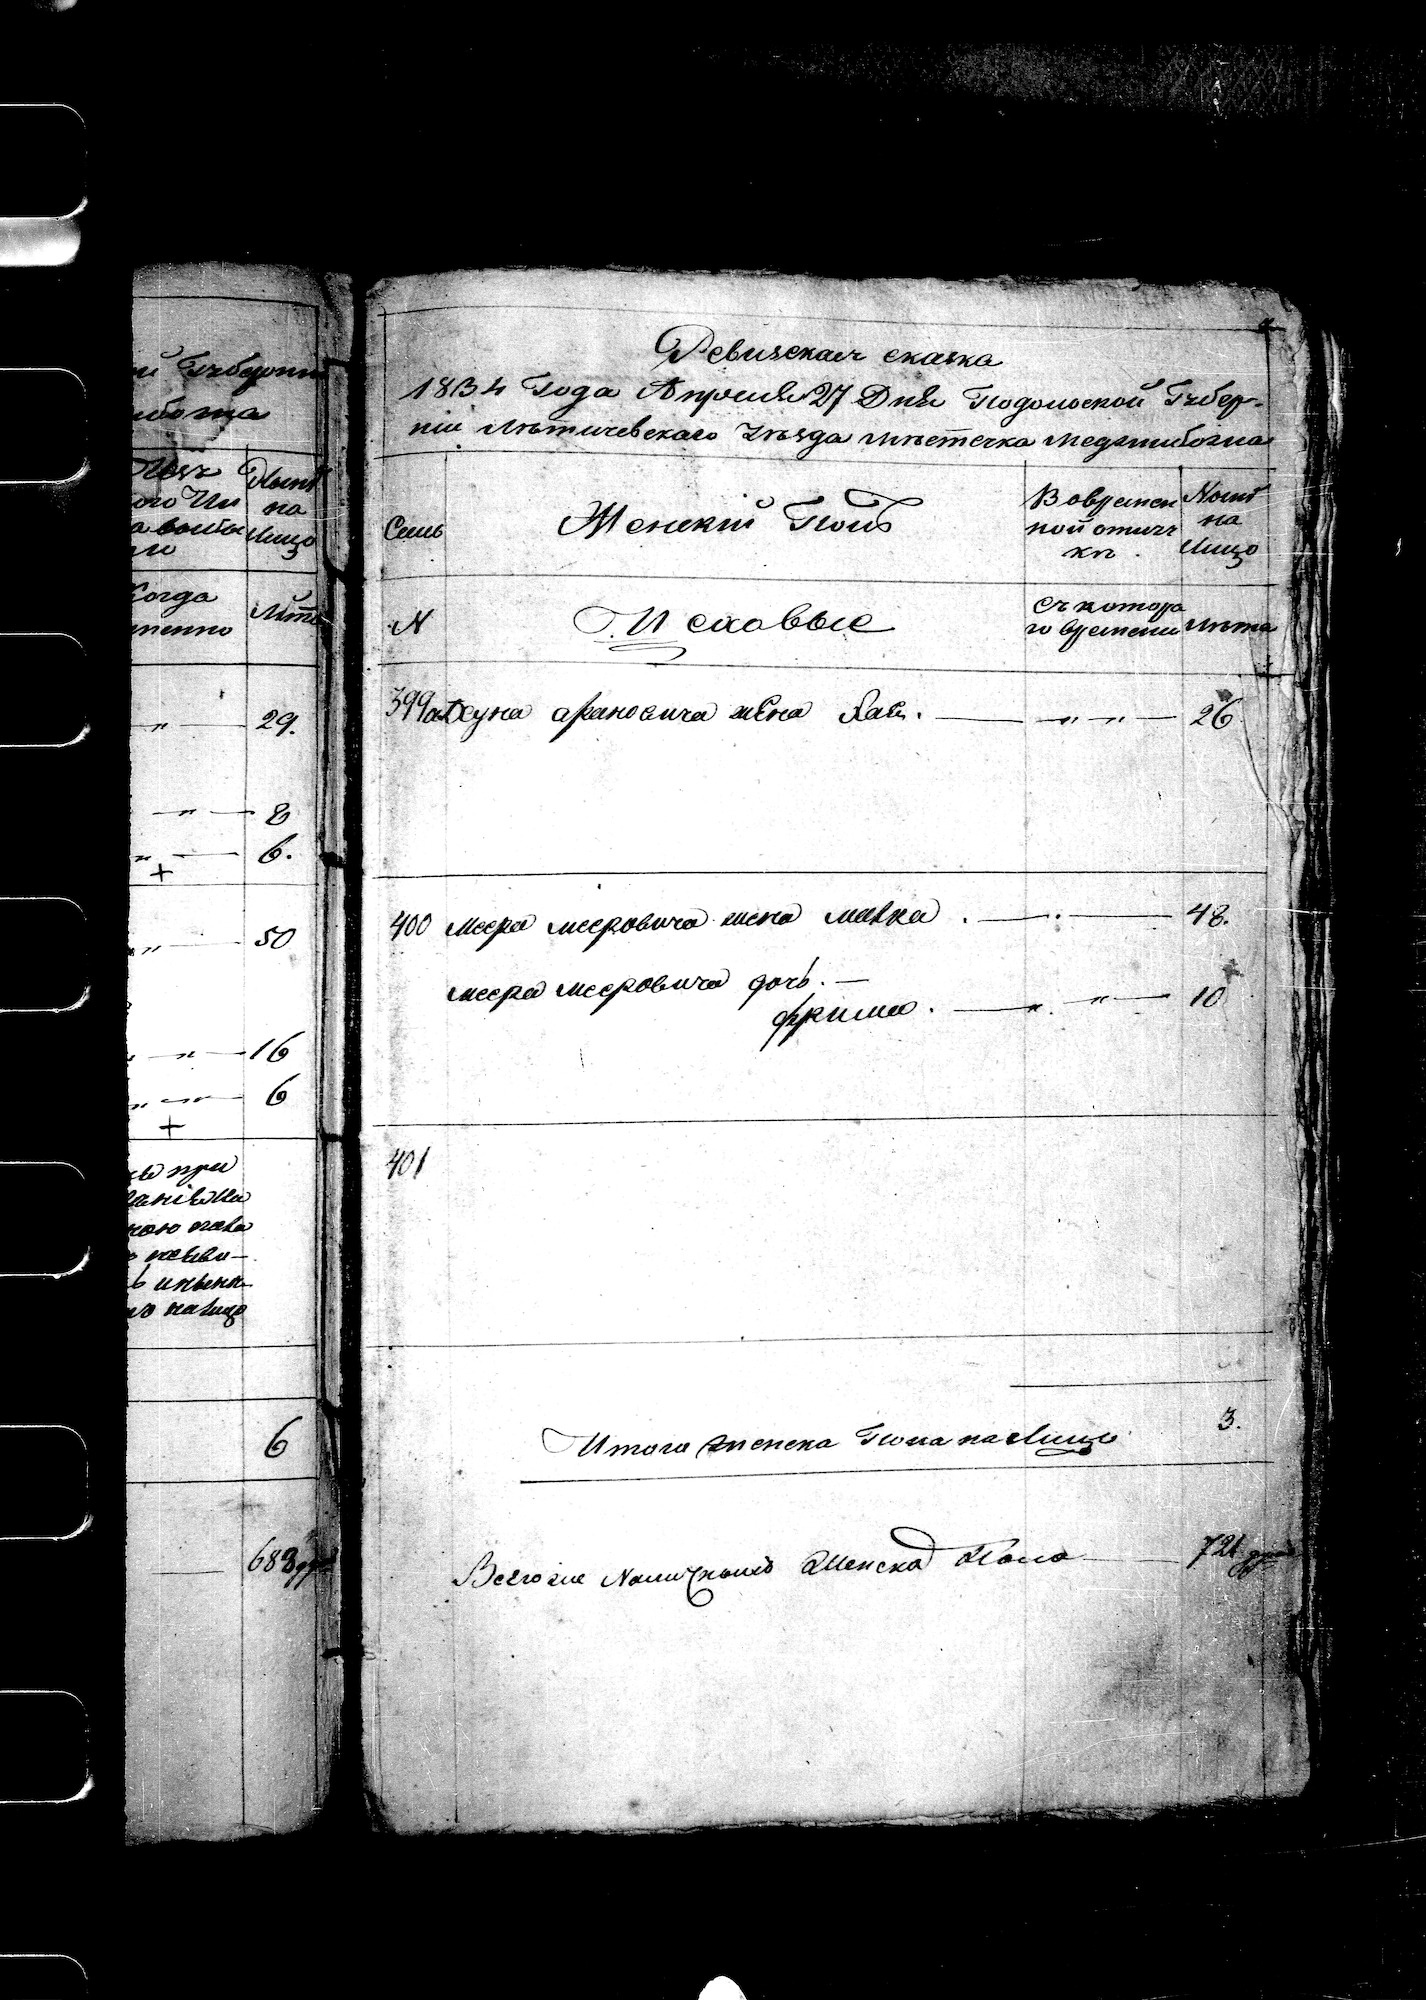 й Губерніи
ибожа
Налич
на
Лицо
Когда
Лѣта
"
29.
" 8
" 6.
+
" 50
" 16
" 6
+
при
6
683
Ревизская сказка
1834 Года Апреля 27 Дня Подольской Губер-
ніи Лѣтичевскаго Уѣзда мѣстечка Меджибожа
Семь
Женскій Полъ
Вовремен
ной отлуч
кѣ.
Ныне
на
Лицо
N
Исковые
Съ котора
го времени
Лѣта
399 арановича жена Хая. " " 26
400 меера мееровича жена малка . 48.
меера мееровича дочь.
фрима. " " 10
401
3.
Итого женска Пола на Лицо
Всего же Наличныхъ Женска Пола 721